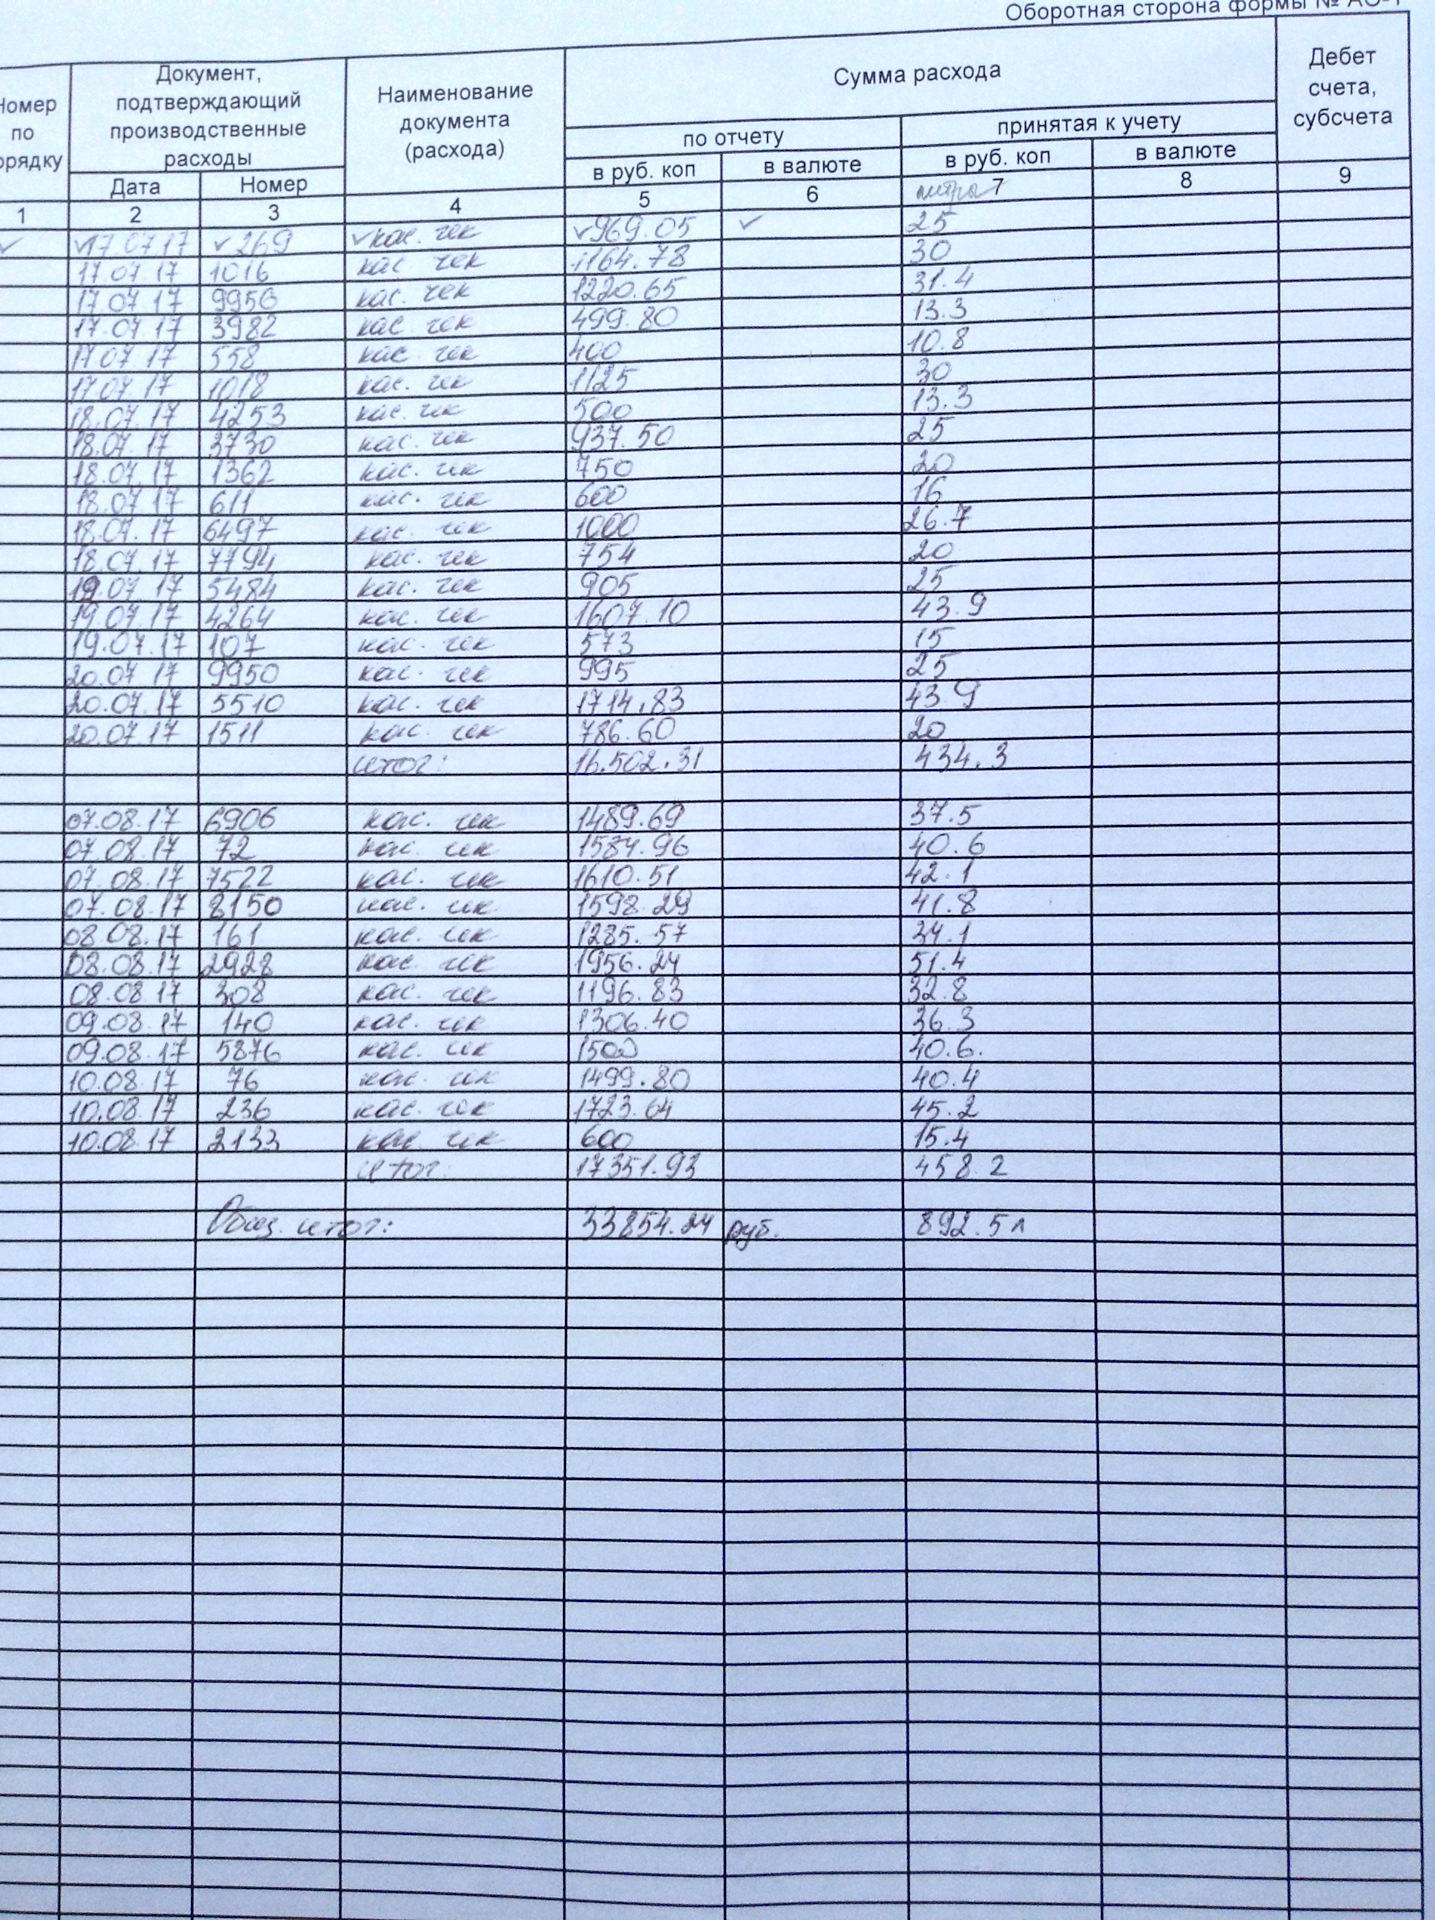 Оборотная сторона формы № АО-1
Номер по порядку
Документ, подтверждающий производственные расходы
Наименование документа (расхода)
Сумма расхода
Дебет счета, субсчета
по отчету
принятая к учету
Дата Номер
в руб. коп в валюте в руб. коп в валюте
литра
1 2 3 4 5 6 7 8 9
✓ ✓17.07.17 ✓269 ✓кас. чек ✓969.05 ✓ 25
17.07.17 1016 кас. чек 1164.78 30
17.07.17 9956 кас. чек 1220.65 31.4
17.07.17 3982 кас. чек 499.80 13.3
17.07.17 558 кас. чек 400 10.8
17.07.17 1018 кас. чек 1125 30
18.07.17 4253 кас. чек 500 13.3
18.07.17 3730 кас. чек 937.50 25
18.07.17 1362 кас. чек 750 20
18.07.17 611 кас. чек 600 16
18.07.17 6497 кас. чек 1000 26.7
18.07.17 7794 кас. чек 754 20
19.07.17 5484 кас. чек 905 25
19.07.17 4264 кас. чек 1607.10 43.9
19.07.17 107 кас. чек 573 15
20.07.17 9950 кас. чек 995 25
20.07.17 5510 кас. чек 1714,83 43.9
20.07.17 1511 кас. чек 786.60 20
итог: 16.502.31 434.3
07.08.17 6906 кас. чек 1489.69 37.5
07.08.17 72 кас. чек 1584.96 40.6
07.08.17 7522 кас. чек 1610.51 42.1
07.08.17 8150 кас. чек 1598.29 41.8
08.08.17 161 кас. чек 1285.57 34.1
08.08.17 2928 кас. чек 1956.24 51.4
08.08.17 308 кас. чек 1196.83 32.8
09.08.17 140 кас. чек 1306.40 36.3
09.08.17 5876 кас. чек 1500 40.6.
10.08.17 76 кас. чек 1499.80 40.4
10.08.17 236 кас. чек 1723.64 45.2
10.08.17 2133 кас. чек 600 15.4
итог: 17351.93 458.2
Общ. итог: 33854.24 руб. 892.5л